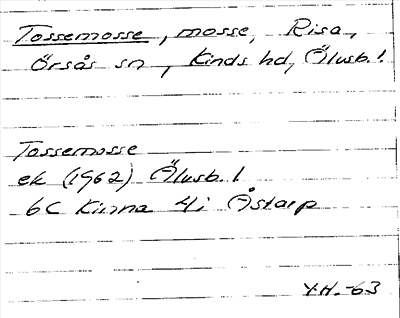 Tossemosse, mosse, Risa,
Örsås sn, Kinds hd, Älvsb. l.
Tossemosse
ek (1962) Älvsb. l
6C Kinna 4i Åstarp
Y.H.-63